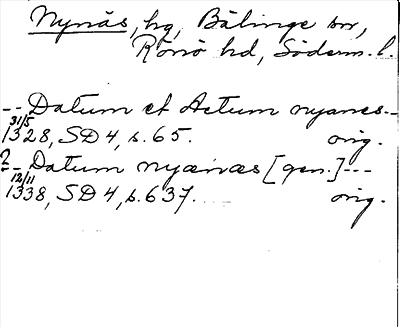 Nynäs, hg, Bälinge sn,
Rönö hd, Söderm. l.
-- Datum et Actum nyanes --
31/5
1328, SD 4, s. 65. orig.
? -- Datum nyænæs [gen.] ---
12/11
1338, SD 4, s. 637. orig.